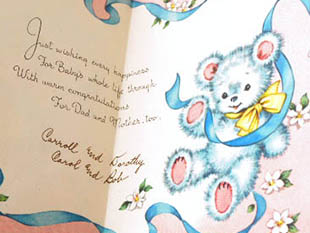 Just wishing every happiness
For Baby's whole life through
With warm congratulations
For Dad and Mother, too.
Carroll End Dorothy
Carol End Bob